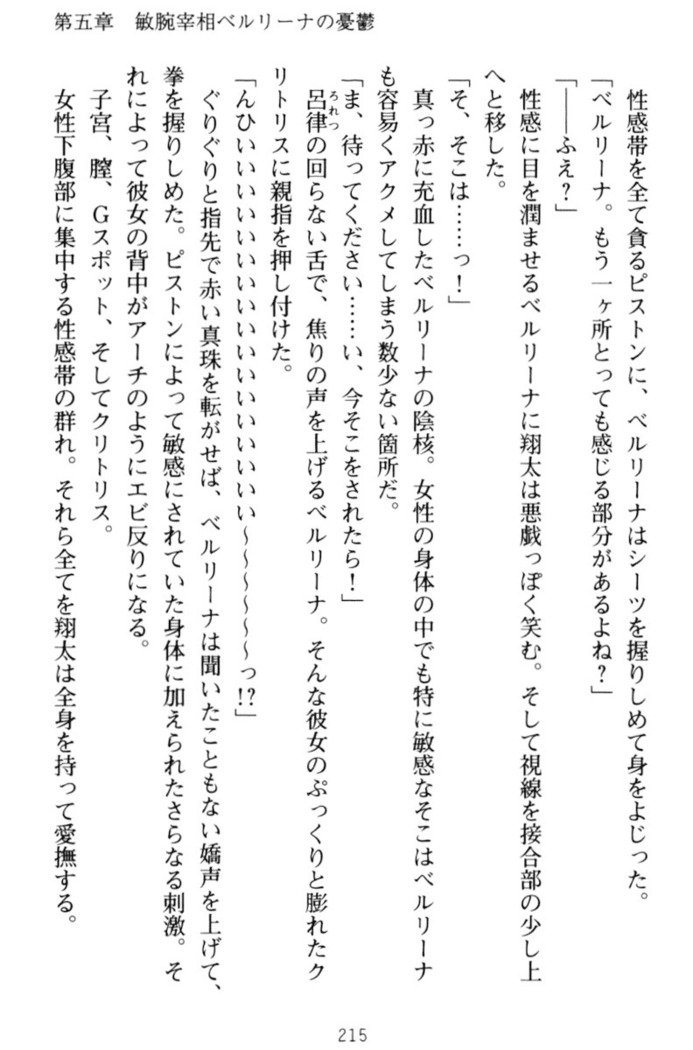 第五章　敏腕宰相ベルリーナの憂鬱
性感帯を全て貪るピストンに、ベルリーナはシーツを握りしめて身をよじった。
「ベルリーナ。もう一ヶ所とっても感じる部分があるよね？」
「――ふえ？」
性感に目を潤ませるベルリーナに翔太は悪戯っぽく笑む。そして視線を接合部の少し上
へと移した。
「そ、そこは……っ！」
真っ赤に充血したベルリーナの陰核。女性の身体の中でも特に敏感なそこはベルリーナ
も容易くアクメしてしまう数少ない箇所だ。
「ま、待ってください……い、今そこをされたら！」
呂律の回らない舌で、焦りの声を上げるベルリーナ。そんな彼女のぷっくりと膨れたク
ろれつ
リトリスに親指を押し付けた。
「んひいいいいいいいいいいいいいいいいい～～～～～～っ!?」
ぐりぐりと指先で赤い真珠を転がせば、ベルリーナは聞いたこともない嬌声を上げて、
拳を握りしめた。ピストンによって敏感にされていた身体に加えられたさらなる刺激。そ
れによって彼女の背中がアーチのようにエビ反りになる。
子宮、膣、Gスポット、そしてクリトリス。
女性下腹部に集中する性感帯の群れ。それら全てを翔太は全身を持って愛撫する。
215